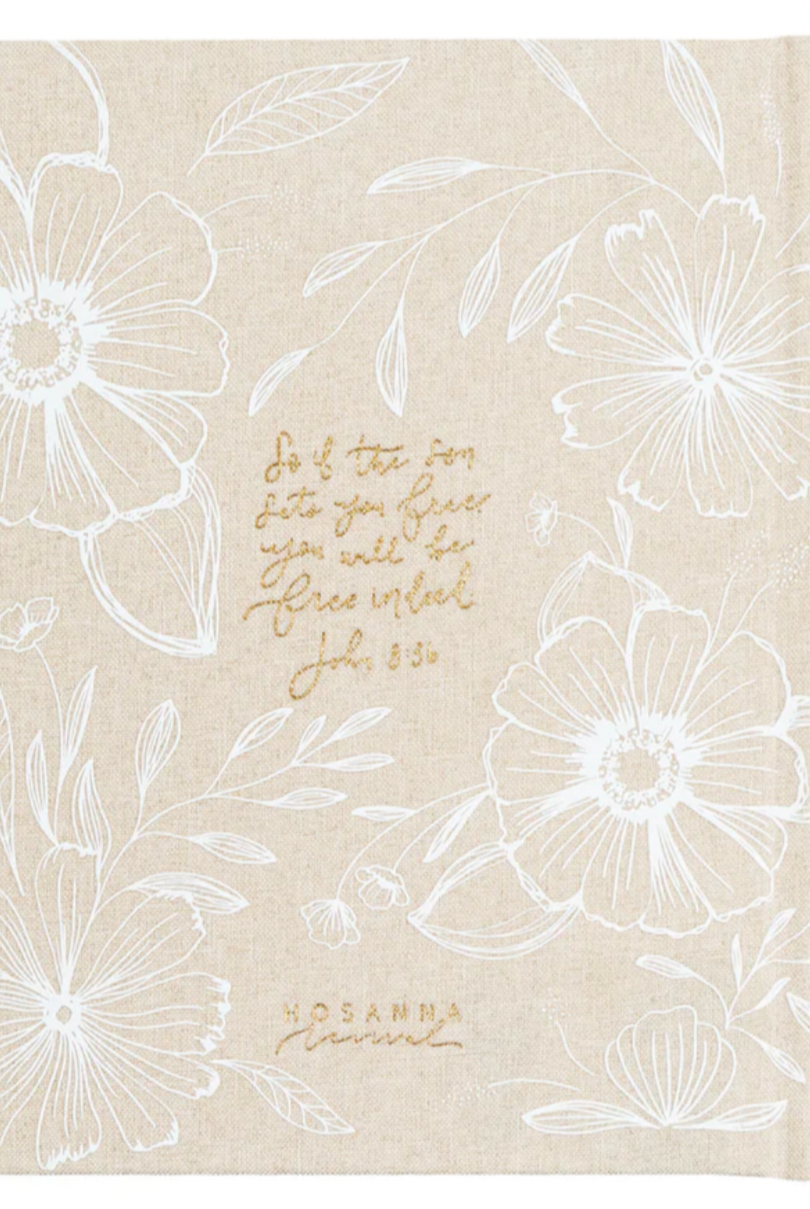 So if the son
sets you free
you will be
free indeed
John 8:36
HOSANNA
Revival